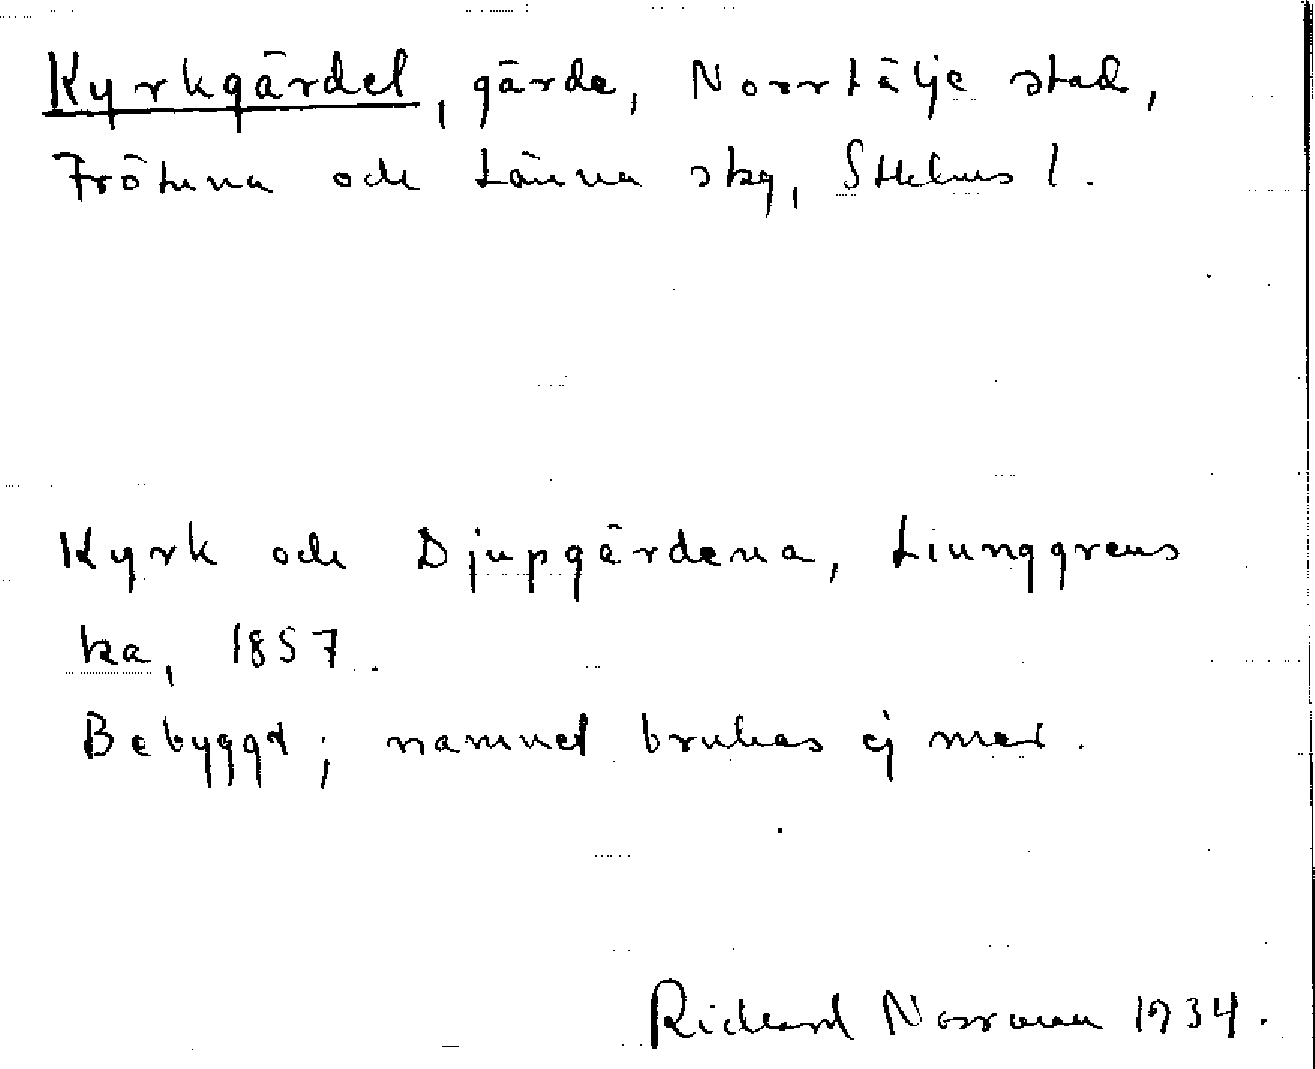 Kyrkgärdet, gärde, Norrtälje stad,
Frötuna och Länna skg, Sthlms l.
Kyrk och Djupgärdena, Liunggrens
ka, 1857.
Bebyggt; namnet brukas ej mer.
Richard Norrman 1934.